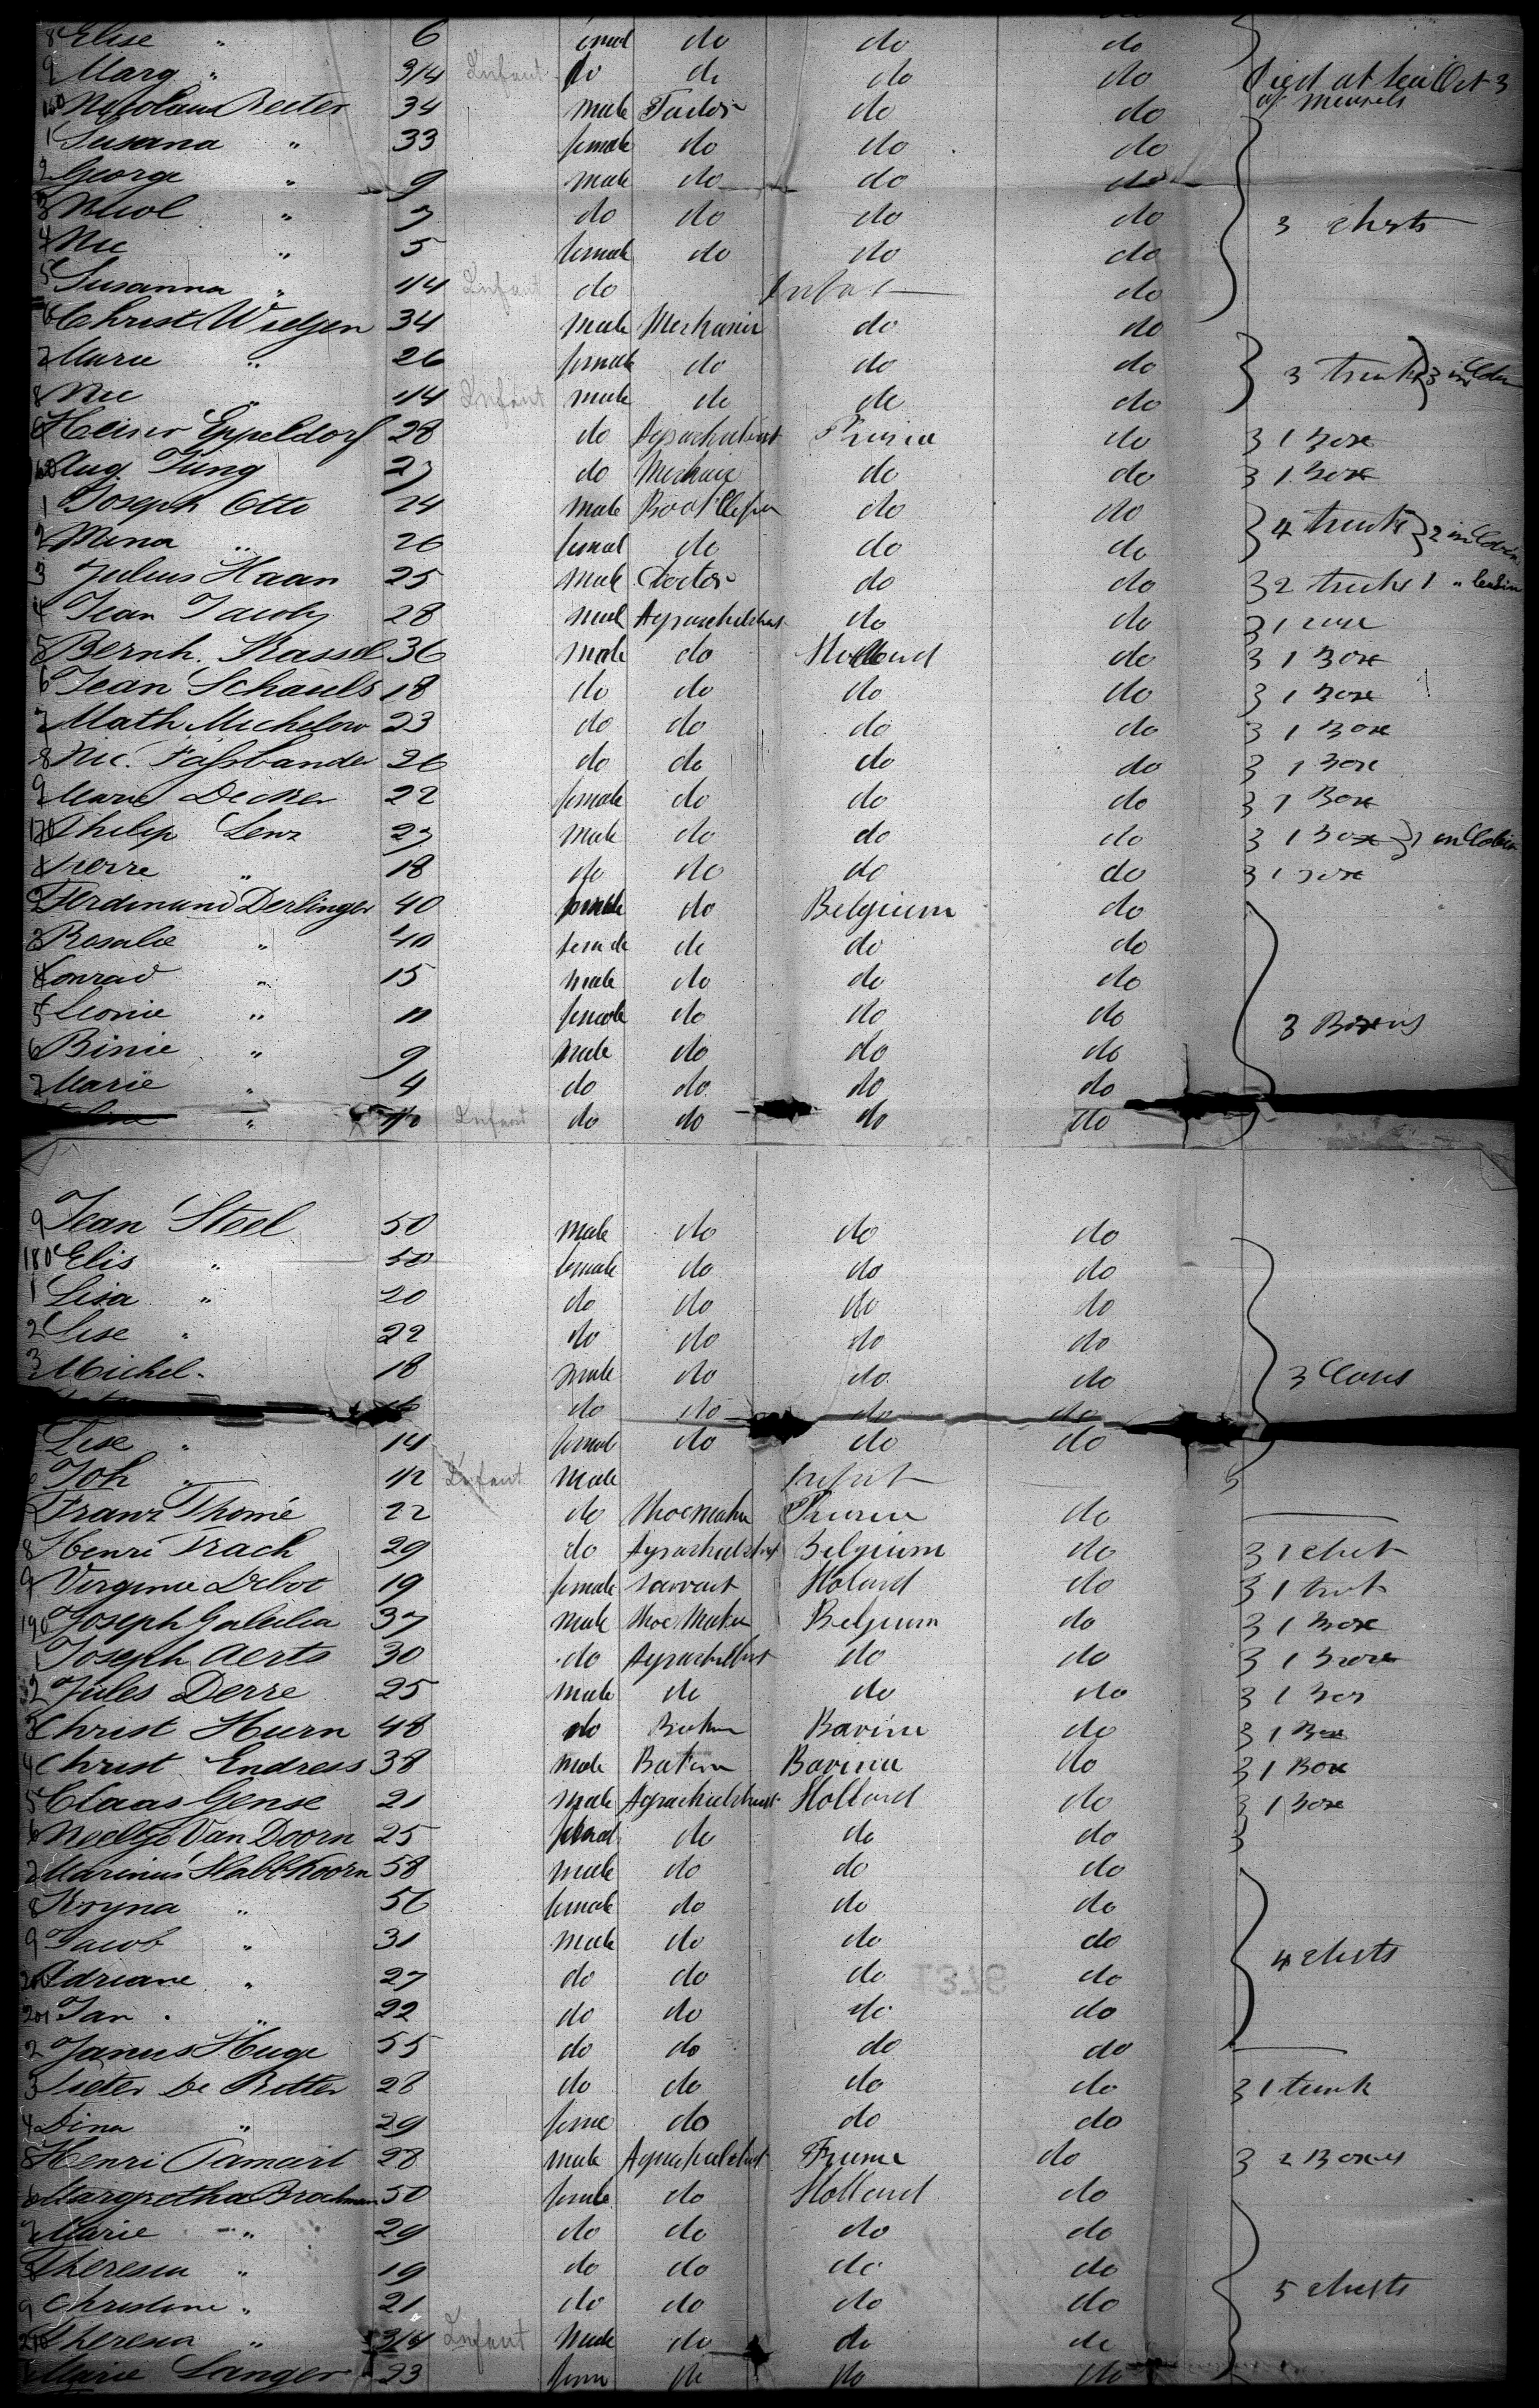 8 Elise " 6 femal do do do
9 Marg " 3/4 Infant do do do do Died at sea Oct 3
of Measels
160 Nicolaus Reiter 34 male do do
1 Susana " 33 female do do do
2 George " 9 male do do do
3 Nicol " 7 do do do do 3 chests
4 Nic " 5 female do do do
5 Susanna " 1/4 Infant do Infant do
6 Christ 34 male Mechanic do do
7 Marie " 26 female do do do 3 trunks 3 in Cabin
8 Nic " 1/4 Infant male do do do
9 Heinr Eppeldorf 28 do Agriculturist Prussia do 3 1 Box
Aug Jung 27 do Mechanic do do 3 1 Box
1 Joseph Otto 24 male do do 4 trunks 2 in Cabin
2 Mina " 26 femal do do do
3 Julius Haan 25 male Doctor do do 3 2 trunks 1 " Cabin
4 Jean Jacoby 28 male Agriculturist do do 3 1
5 Bernh. Kassel 36 male do Holland do 3 1 Box
6 Jean Schauls 18 do do do do 3 1 Box
7 Math Michelow 23 do do do do 3 1 Box
8 Nic. Faßbander 26 do do do do 3 1 Box
9 Marie Decker 22 female do do do 3 1 Box
170 Philip Lenz 27 male do do do 3 1 Box 1 in Cabin
1 Pierre " 18 do do do do 3 1 Box
2 Ferdinand Derlinger 40 do Belgium do
3 Rosalie " 40 female do do do
4 Conrad " 15 male do do do
5 Leonie " 11 female do do do 3 Boxens
6 Binie " 9 male do do do
7 Marie " 4 do do do do
" Infant do do do do
9 Jean Steel 50 male do do do
180 Elis " 50 female do do do
1 Lisa " 20 do do do do
2 Lise " 22 do do do do
3 Michel " 18 male do do do 3
do do do do
Lise " 14 femal do do do
Joh " 1/2 Infant male Infant
Franz Thomé 22 do Shoemaker Prussia do
8 Henri Trach 29 do Agriculturist Belgium do 3 1 chest
9 Virginie Debot 19 female servant Holand do 3 1 trunk
190 Joseph 37 male Shoe Maker Belgium do 3 1 Box
1 Joseph Aerts 30 do Agriculturist do do 3 1 Box
2 Jules Derre 25 male do do do 3 1 Box
3 Christ Hurn 48 do Bavaria do 3 1 Box
4 Christ Endress 38 male Bavaria do 3 1 Box
5 Claas Gense 21 male Agriculturist Holland do 3 1 Box
6 Neeltje Van Doorn 25 femal do do do 3
7 Marinus Slabbkoorn 58 male do do do
8 Kryna " 56 female do do do
9 Jacob " 31 male do do do 4 chests
200 Adriane " 27 do do do do
201 Jan " 22 do do do do
2 Janus Huge 55 do do do do
3 Pieter De Ritter 28 do do do do 3 1 trunk
4 Dina " 29 feme do do do
5 Henri Tamart 28 male Agriculturist France do 3 2 Boxes
6 Margretha Brockman 50 female do Holland do
7 Marie " 29 do do do do
8 Theresia " 19 do do do do
9 Christine " 21 do do do do 5 chests
210 Theresia " 3/4 Infant Male do do do
Marie Langer 23 fem do do do